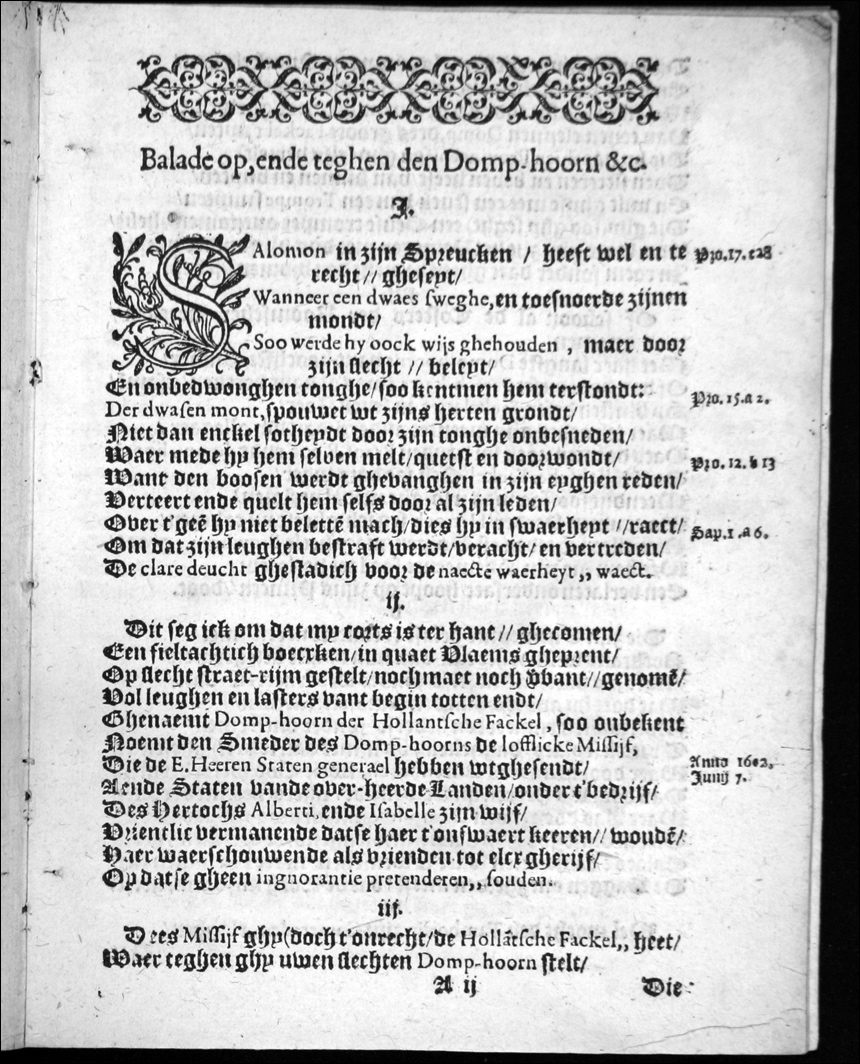 Balade op, ende teghen den Domp-hoorn &c.
I.
SAlomon in zijn Spreucken / heeft wel en te Pro.17.c28
recht // ghesept/
Wanneer een dwaes sweghe, en toesnoerde zijnen
mondt/
Soo werde hy oock wijs ghehouden , maer door
zijn slecht // beleyt/
En onbedwonghen tonghe/soo kentmen hem terstondt:
Der dwasen mont, spouwet wt zijns herten grondt/ Pro. 15.a 2.
Niet dan enckel sotheydt door zijn tonghe onbesneden/
Waer mede hy hem selven melt/quetst en doorwondt/ Pro. 12. b 13
Want den boosen werdt ghevanghen in zijn eyghen reden/
Verteert ende quelt hem selfs door al zijn leden/
Over t'geē hy niet belettē mach/dies hy in swaerheyt //raect/ Sap.1.a 6.
Om dat zijn leughen bestraft werdt/veracht/en vertreden/
De clare deucht ghestadich voor de naecte waerheyt ,, waect.
ij.
Dit seg ick om dat my corts is ter hant // ghecomen/
Een fieltachtich boecxken/in quaet Vlaems gheprent/
Op slecht straet-rijm gestelt/noch maet noch vant//genomē/
Vol leughen en lasters vant begin totten endt/
Ghenaemt Domp-hoorn der Hollantsche Fackel, soo onbekent
Noemt den Smeder des Domp-hoorns de lofflicke Missijf,
Die de E. Heeren Staten generael hebben wtghesendt/ Anno 1602.
Aende Staten vande over-heerde Landen/onder t'bedrijf/ Junij 7.
Des Hertochs Alberti, ende Isabelle zijn wijf/
Vrientlic vermanende datse haer t'onswaert keeren// woudē/
Haer waerschouwende als vrienden tot elcx gherijf/
Op datse gheen ingnorantie pretenderen,, souden.
iij.
Dees Missijf ghy (doch t'onrecht/de Hollātsche Fackel,, heet/
Waer teghen ghy uwen slechten Domp-hoorn stelt/
A ij Die